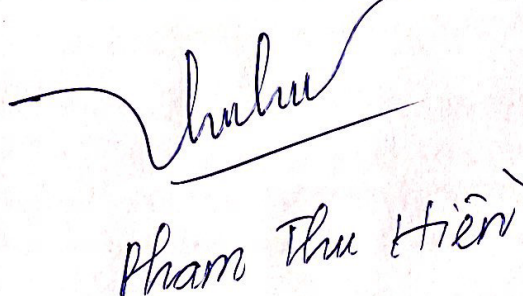 Pham Thu Hiền